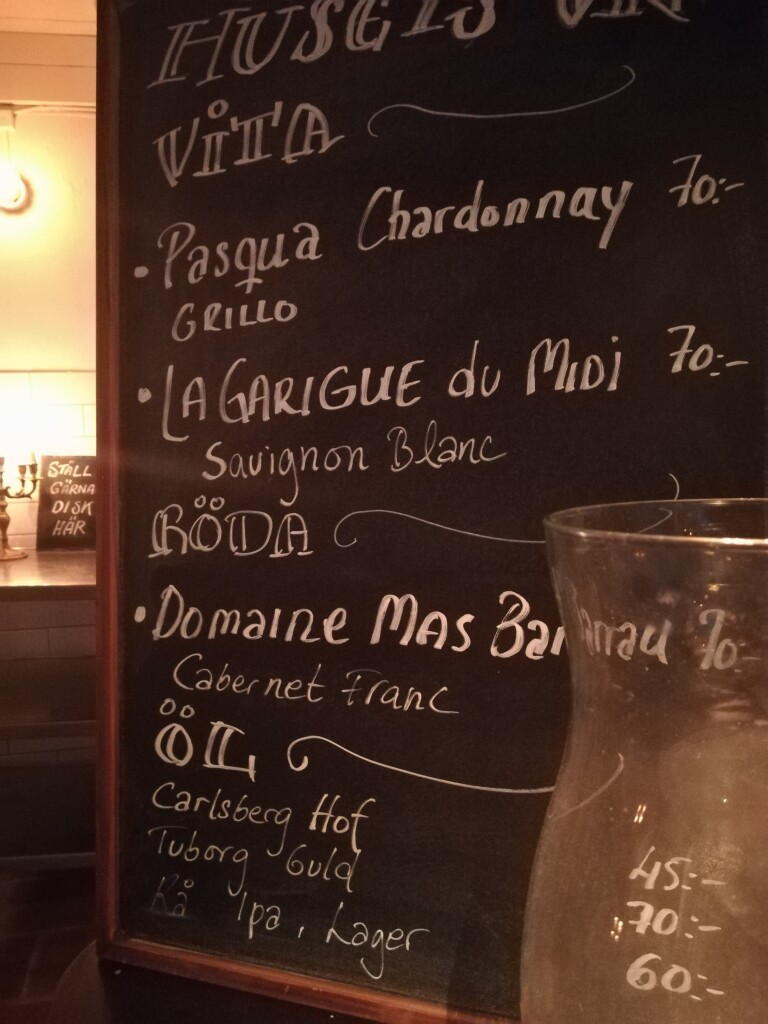 HUSETS VIN
VITA
• Pasqua Chardonnay 70:-
GRILLO
• LA GARIGUE du MIDI 70:-
Sauvignon Blanc
RÖDA
• Domaine MAS Barrau 70:-
Cabernet Franc
ÖL
Carlsberg Hof 45:-
Tuborg Guld 70:-
Rå Ipa, Lager 60:-
STÄLL
GÄRNA
DISK
HÄR